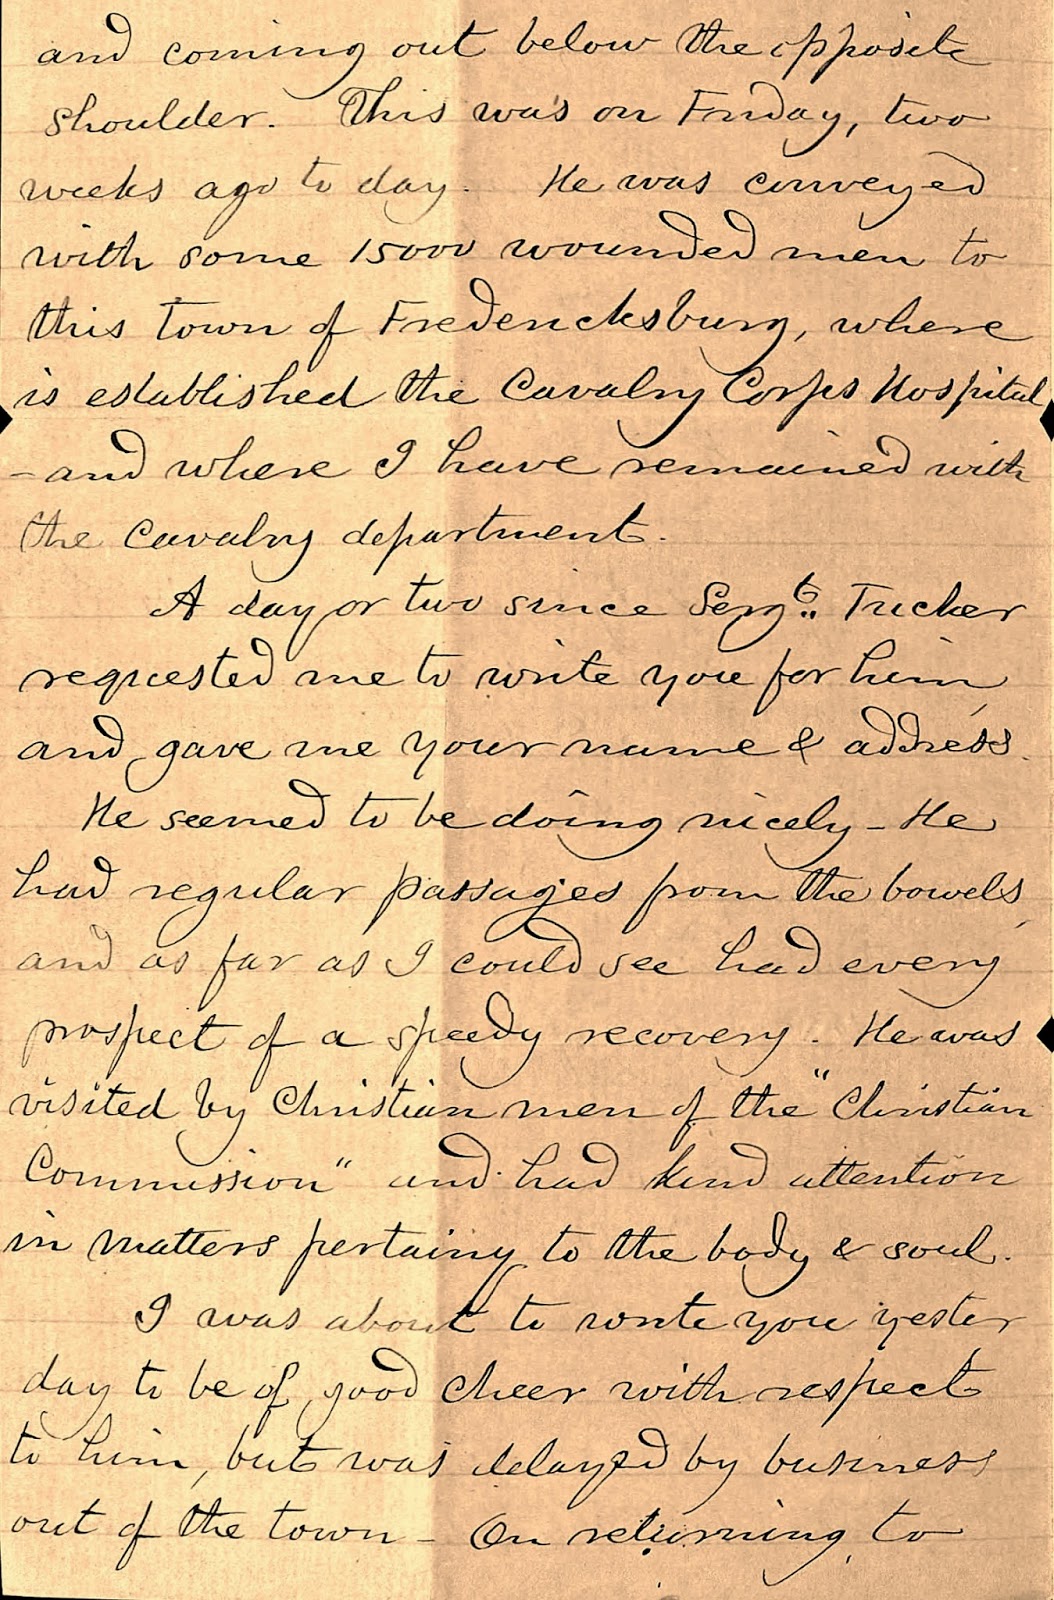 and coming out below the opposite
shoulder. This was on Friday, two
weeks ago to day. He was conveyed
with some 15000 wounded men to
this town of Fredericksburg, where
is established the Cavalry Corps Hospital
- and where I have remained with
the Cavalry department.
A day or two since Sergt. Tucker
requested me to write you for him,
and gave me your name & address.
He seemed to be doing nicely - He
had regular passages from the bowels,
and as far as I could see had every
prospect of a speedy recovery. He was
visited by Christian men of the "Christian
Commission" and had kind attention
in matters pertaining to the body & soul.
I was about to write you yester
day to be of good cheer with respect
to him, but was delayed by business
out of the town - On returning to